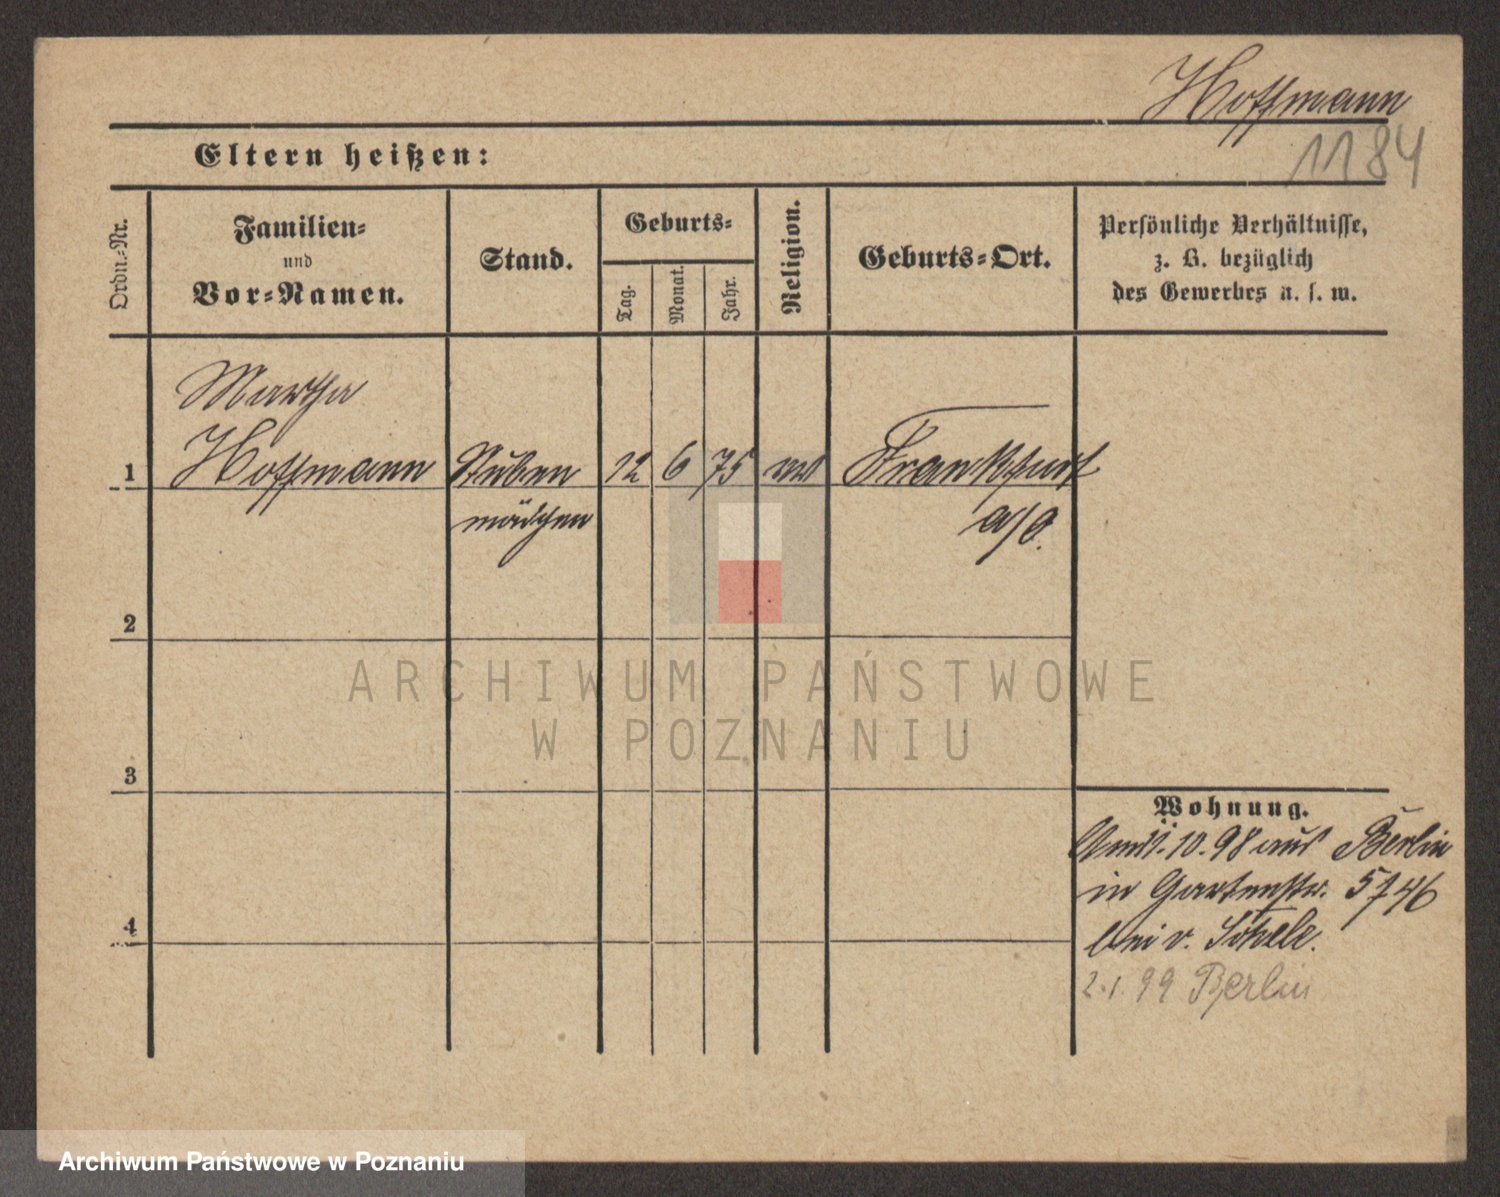 Hoffmann
1184
Eltern heißen:
Ordn.-Nr.
Familien-
und
Vor-Namen.
Stand.
Geburts-
Tag.
Monat.
Jahr.
Religion.
Geburts-Ort.
Persönliche Verhältnisse,
z. B. bezüglich
des Gewerbes u. s. w.
Martha
1 Hoffmann Stuben 12 6 75 Frankfurt
mädchen a/O.
2
ARCHIWUM PAŃSTWOWE
W POZNANIU
3
Wohnung.
10.98 aus Berlin
in Gartenstr.
4
bei v.
2.1.99 Berlin
Archiwum Państwowe w Poznaniu